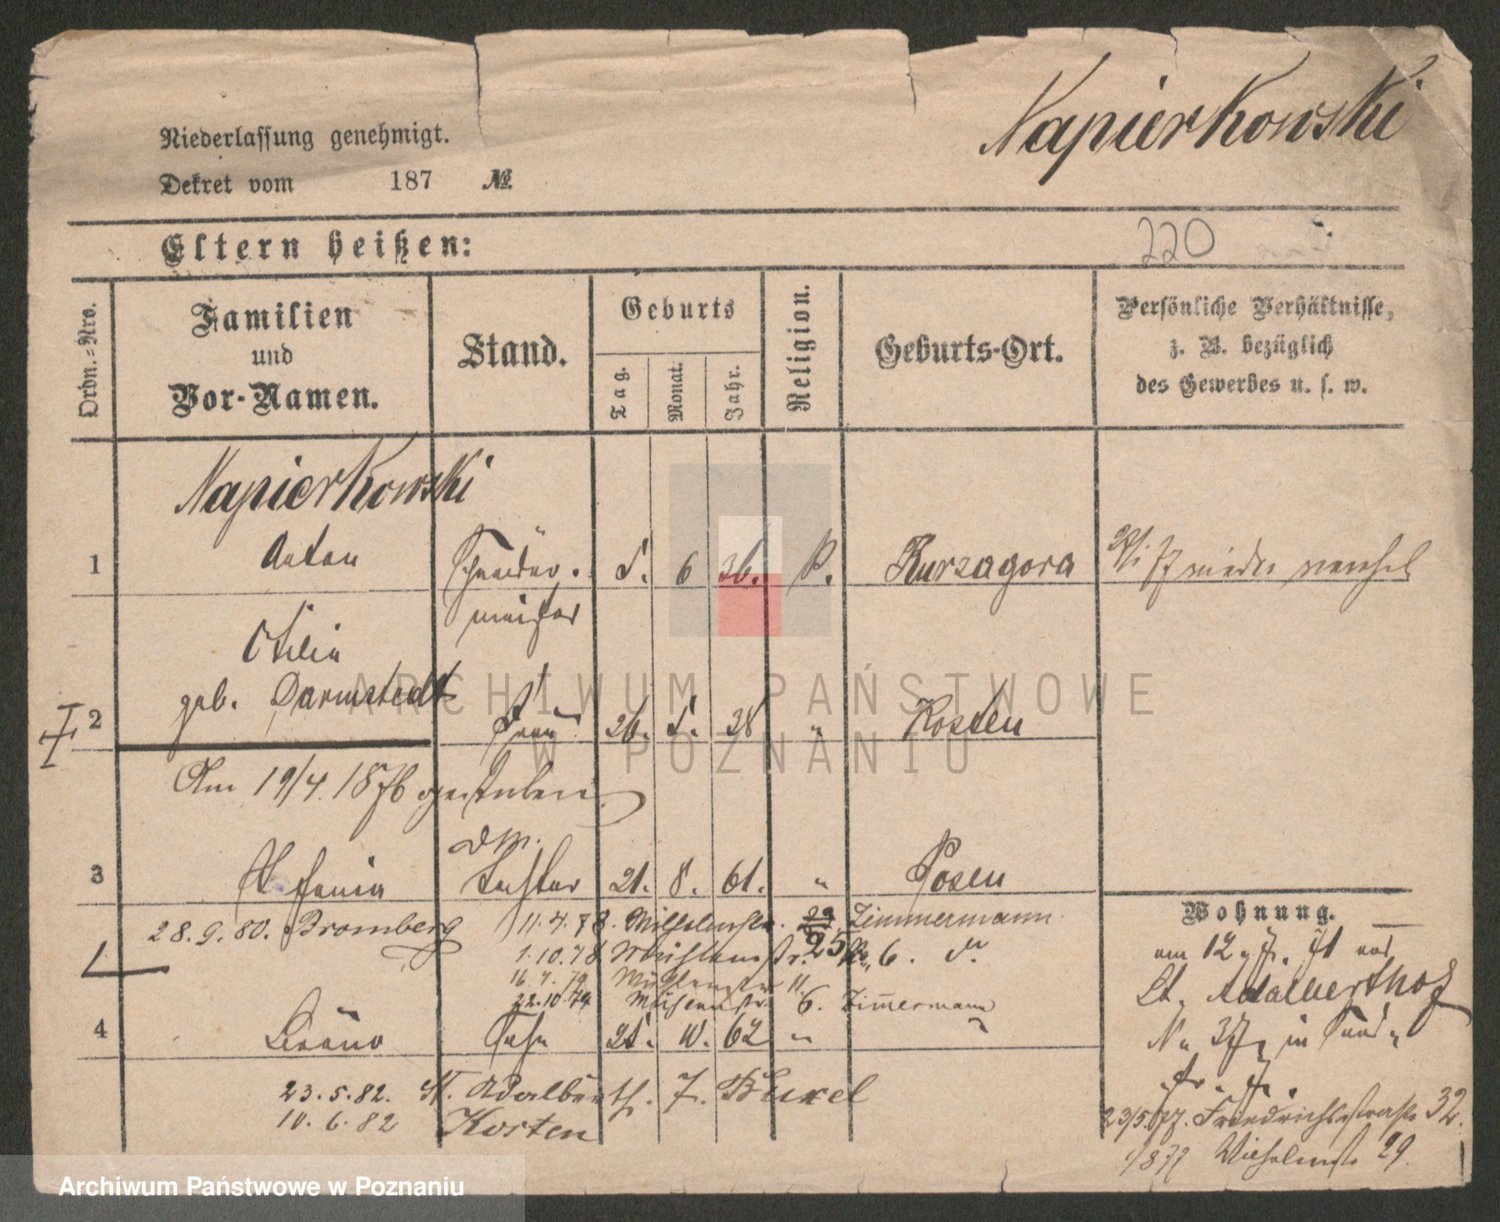 Napierkowski
Niederlassung genehmigt.
Dekret vom 187 №
220
Eltern heißen:
Ordn.=Nro.
Familien
und
Vor-Namen.
Stand.
Geburts
Tag.
Monat.
Jahr.
Religion.
Geburts-Ort.
Persönliche Verhältnisse,
z. B. bezüglich
des Gewerbes u. s. w.
Napierkowski
1 Anton Schneider. 5. 6 36. P. Kurzagora
meister
Otilia
geb. Darmstedt
2 Frau 26. 5. 38 " Kosten
Am 19/4. 1876 gestorben
3 Stefania Tochter 21. 8. 61. " Posen
28.9.80. Bromberg 11.4.78. Wilhelmstr. 29 Zimmermann
25
1.10.78. Mühlenstr. No 6. do
16.7.79 Mühlenstr 11.
22.10.79 Mühlenstr. 6. Zimmermann
4 Bruno Sohn 25. 10. 62 " "
23.5.82. St. Adalberth. 7. Buxel
10.6.82 Kosten
Wohnung.
am 12
St. Adalberthof
No 37 in
23/5.77. Friedrichsstraße 32.
1877 Wilhelmstr 29.
ARCHIWUM PAŃSTWOWE
W POZNANIU
Archiwum Państwowe w Poznaniu